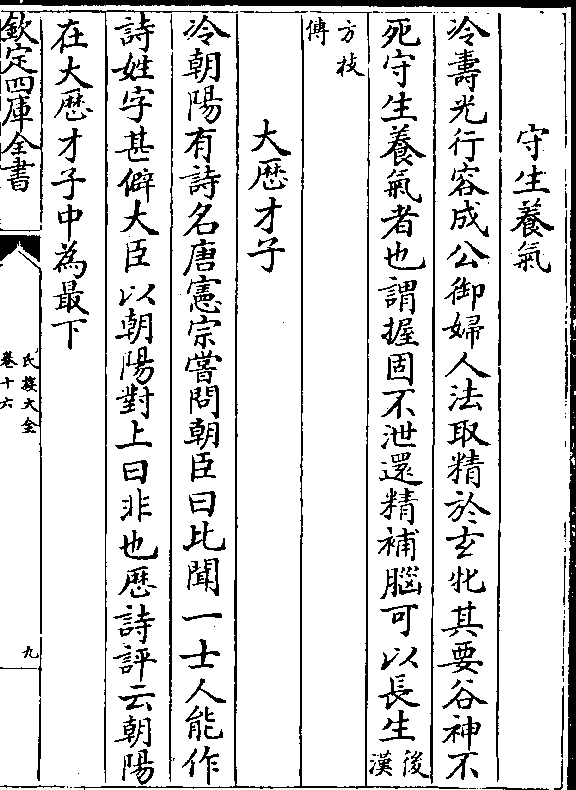 守生養氣
冷壽光行容成公御婦人法取精於玄牝其要谷神不
死守生養氣者也謂握固不泄還精補腦可以長生後漢
方技傳
大歴才子
冷朝陽有詩名唐憲宗嘗問朝臣曰比聞一士人能作
詩姓字甚僻大臣以朝陽對上曰非也歴詩評云朝陽
在大歴才子中為最下
欽定四庫全書
氏族大全
卷十六
九